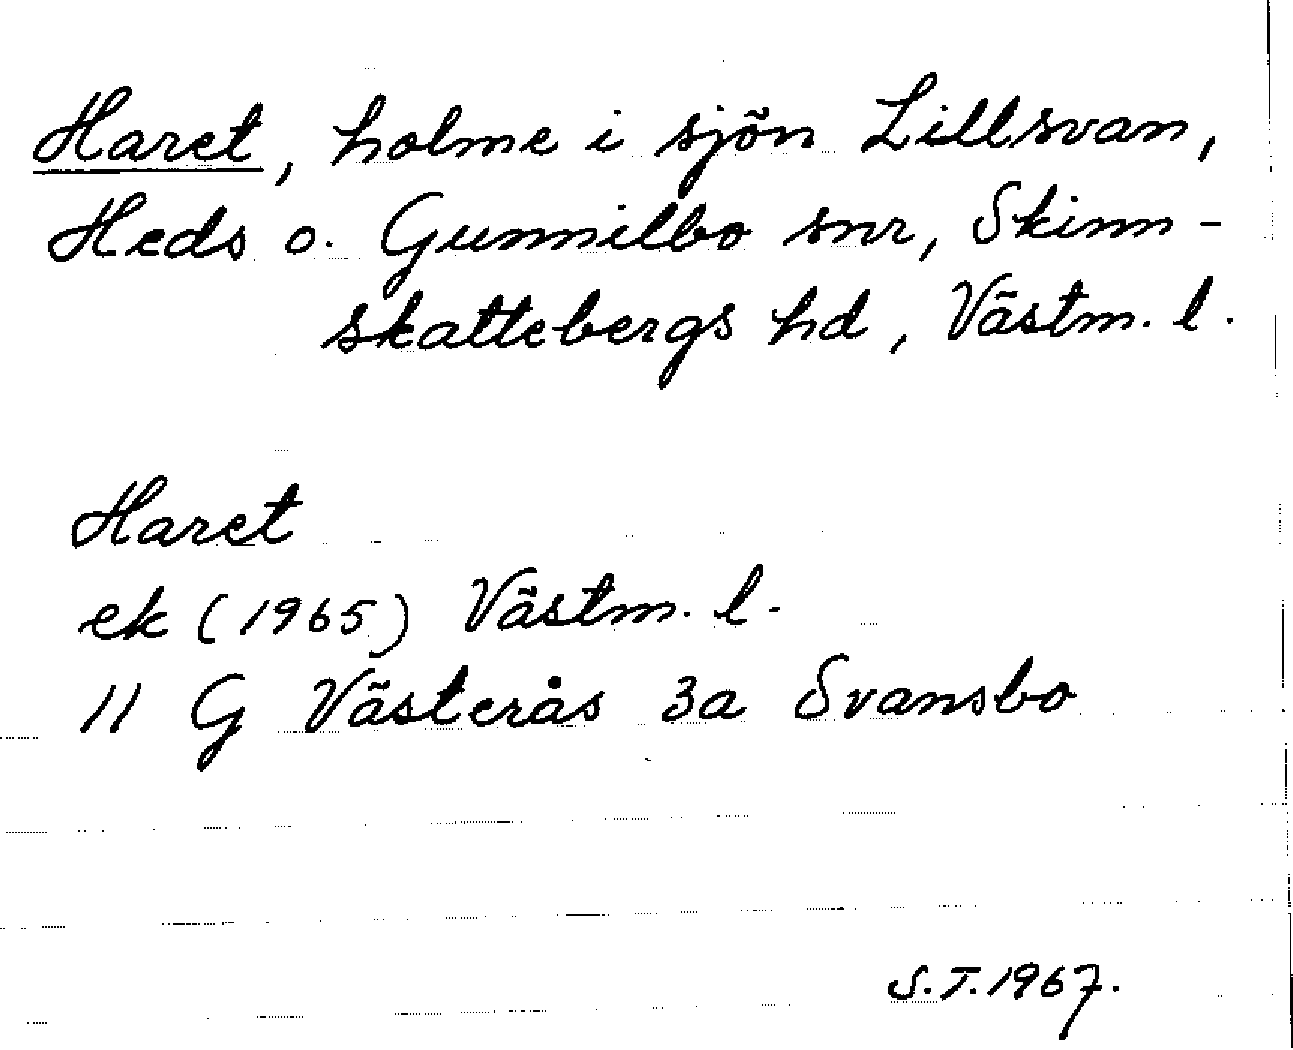 Haret, holme i sjön Lillsvan,
Heds o. Gunnilbo snr, Skinn-
skattebergs hd, Västm. l.
Haret
ek (1965) Västm. l.
11 G Västerås 3a Svansbo
S.T. 1967.